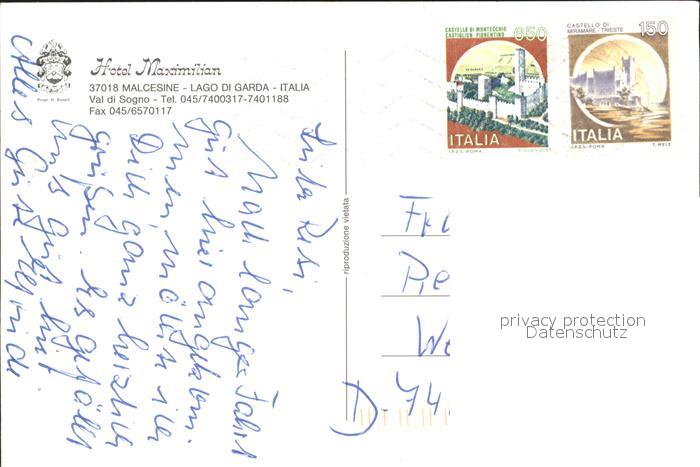 Hotel Maximilian
37018 MALCESINE - LAGO DI GARDA - ITALIA
Val di Sogno - Tel. 045/7400317-7401188
Fax 045/6570117
Resi,
Nach langer Fahrt
gut hier angekommen
möchte ich
Dich ganz herzlich
grüßen. Es gefällt
uns gut hier.
Alles Gute
riproduzione vietata
CASTELLO DI MONTECCHIO
CASTIGLION FIORENTINO
650
ITALIA
I.P.Z.S.-ROMA
CASTELLO DI
MIRAMARE - TRIESTE
150
ITALIA
I.P.Z.S.-ROMA T. MELE
Fr
Re
We
D-74
privacy protection
Datenschutz